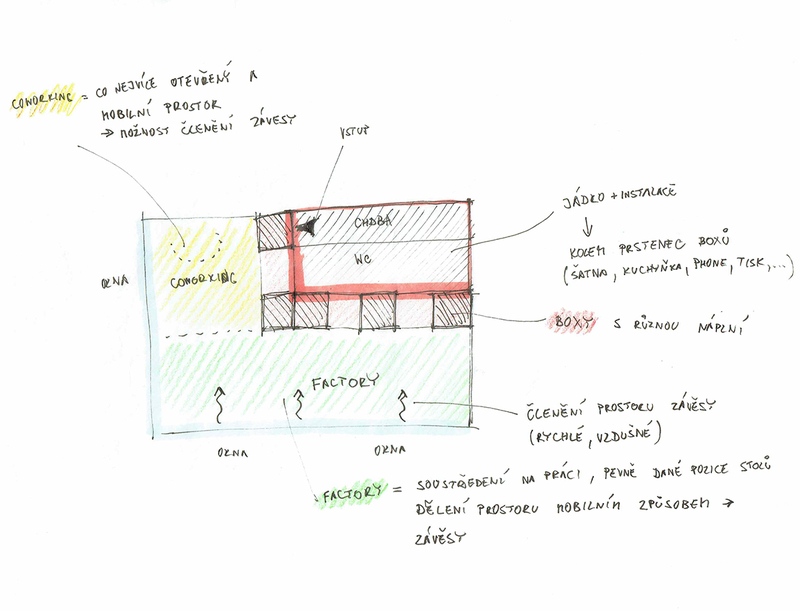 COWORKING = CO NEJVÍCE OTEVŘENÝ A
MOBILNÍ PROSTOR
→ MOŽNOST ČLENĚNÍ ZÁVĚSY
VSTUP
JÁDRO + INSTALACE
↓
KOLEM PRSTENEC BOXŮ
(ŠATNA, KUCHYŇKA, PHONE, TISK,...)
CHDBA
WC
OKNA
COWORKING
BOXY S RŮZNOU NÁPLNÍ
FACTORY
ČLENĚNÍ PROSTORU ZÁVĚSY
(RYCHLÉ, VZDUŠNÉ)
OKNA
OKNA
FACTORY = SOUSTŘEDENÍ NA PRÁCI, PEVNĚ DANÉ POZICE STOLŮ
DĚLENÍ PROSTORU MOBILNÍM ZPŮSOBEM →
ZÁVĚSY